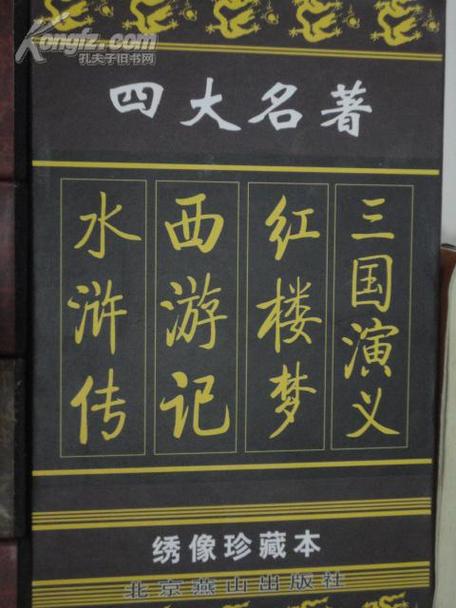 Kongfz.com
孔夫子旧书网
四大名著
三国演义
红楼梦
西游记
水浒传
绣像珍藏本
北京燕山出版社